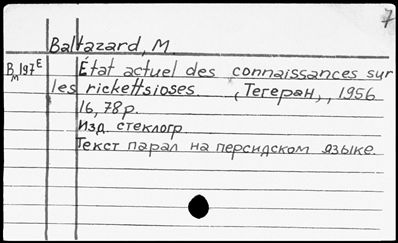 7
Baltazard, M.
B 197E État actuel des connaissances sur
M
les rickettsioses. (Тегеран), 1956.
16, 78 p.
Изд. стеклогр.
Текст парал на персидском языке.